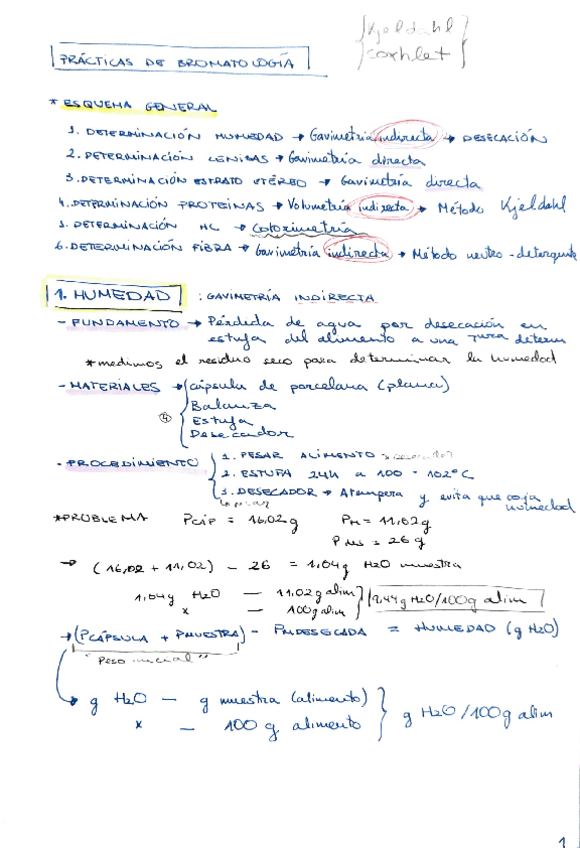 {Kjeldahl
soxhlet}
PRÁCTICAS DE BROMATOLOGÍA
* ESQUEMA GENERAL
1. DETERMINACIÓN HUMEDAD → Gavimetría indirecta → DESECACIÓN
2. DETERMINACIÓN CENIZAS → Gavimetría directa
3. DETERMINACIÓN ESTRATO ETÉREO → Gavimetría directa
4. DETERMINACIÓN PROTEINAS → Volumetría indirecta → Método Kjeldahl
5. DETERMINACIÓN HC → Colorimetría
6. DETERMINACIÓN FIBRA → Gavimetría indirecta → Método neutro-detergente
1. HUMEDAD : GAVIMETRÍA INDIRECTA
- FUNDAMENTO → Pérdida de agua por desecación en
estufa del alimento a una Tura determ
* medimos el residuo seco para determinar la humedad
- MATERIALES → cápsula de porcelana (plana)
④ Balanza
Estufa
Desecador
- PROCEDIMIENTO 1. PESAR ALIMENTO
2. ESTUFA 24h a 100 - 102ºC
3. DESECADOR → Atempera y evita que coja
humedad
* PROBLEMA Pcáp = 16,02g PM = 11,02g
= 26g
→ (16,02 + 11,02) - 26 = 1,04g H2O muestra
1,04g H2O — 11,02g alim
x — 100g alim } 9,44g H2O/100g alim
→ (PCÁPSULA + PMUESTRA) - PM DESECADA = HUMEDAD (g H2O)
"Peso inicial"
g H2O — g muestra (alimento)
x — 100 g alimento } g H2O/100g alim
1